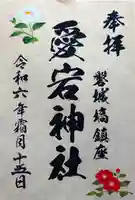 奉拝
磐城湯鎮座
愛宕神社
令和六年霜月十五日